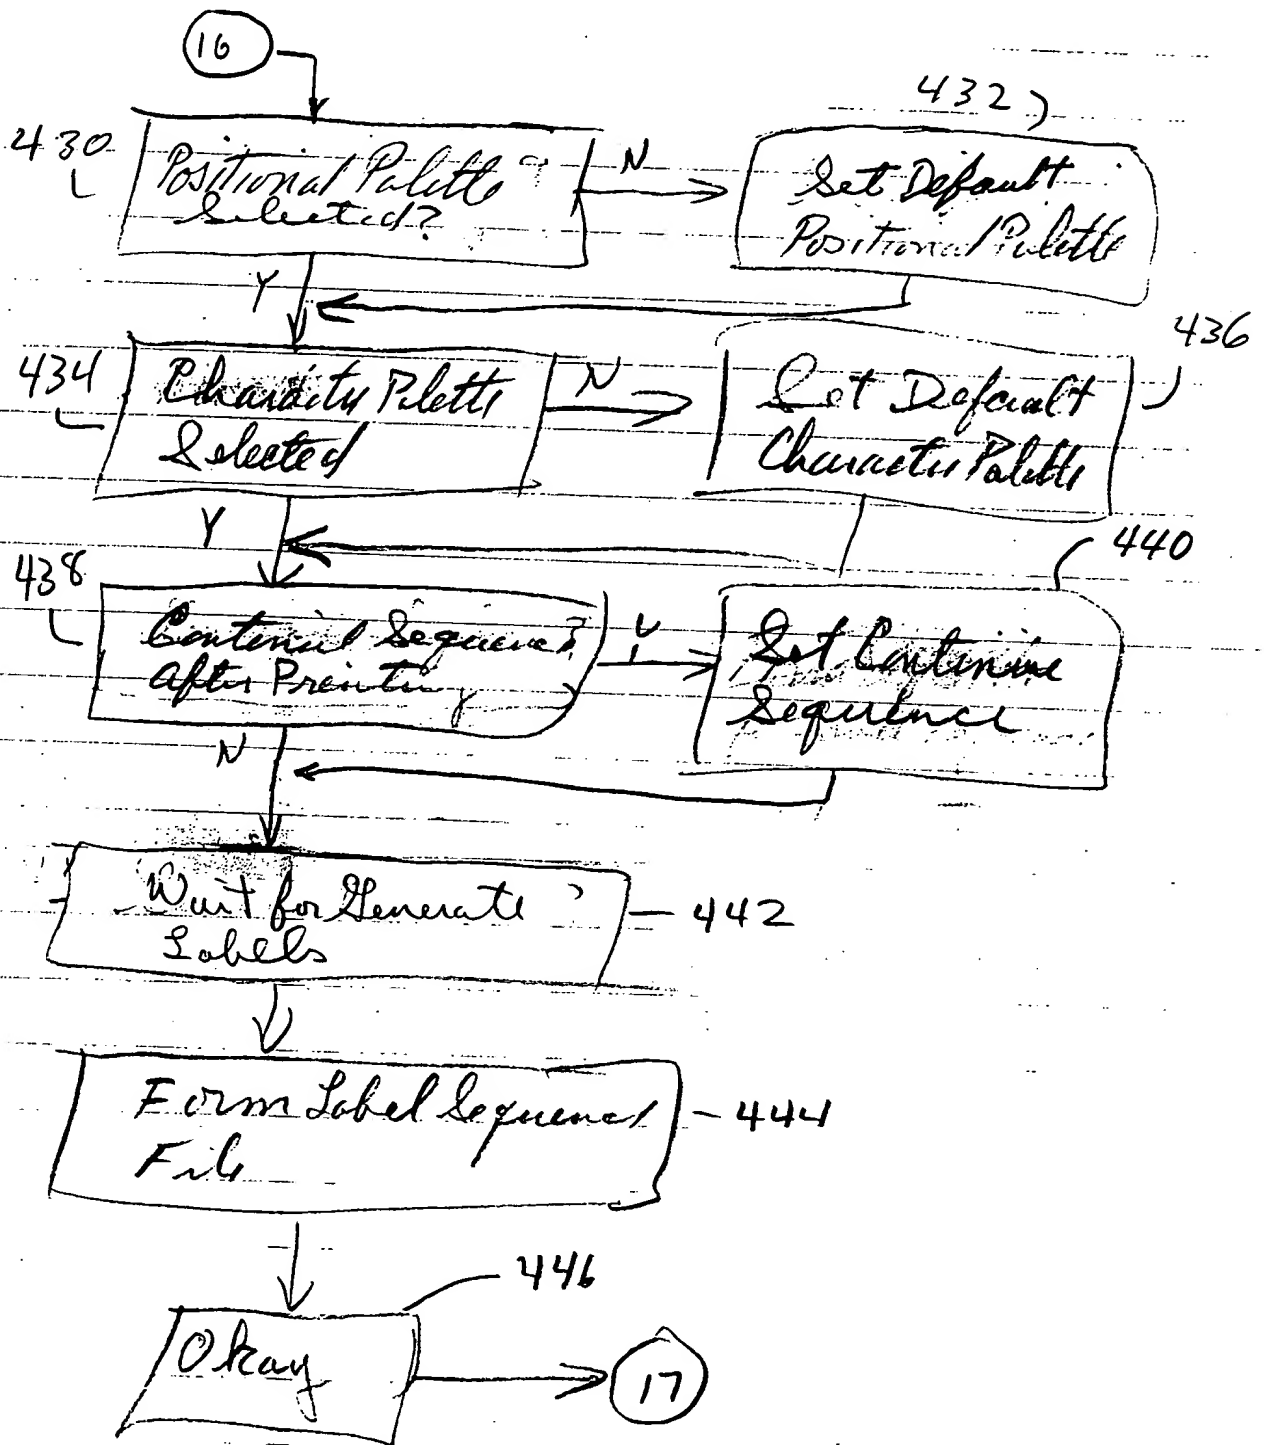 16
432
430
Positional Palette
Selected?
N
Set Default
Positional Palette
Y
436
434
Character Palette
Selected
N
Set Default
Character Palette
Y
440
438
Continue Sequence?
After Printing
Y
Set Continue
Sequence
N
Wait for Generate
Labels
442
Form Label Sequence
File
444
446
Okay
17